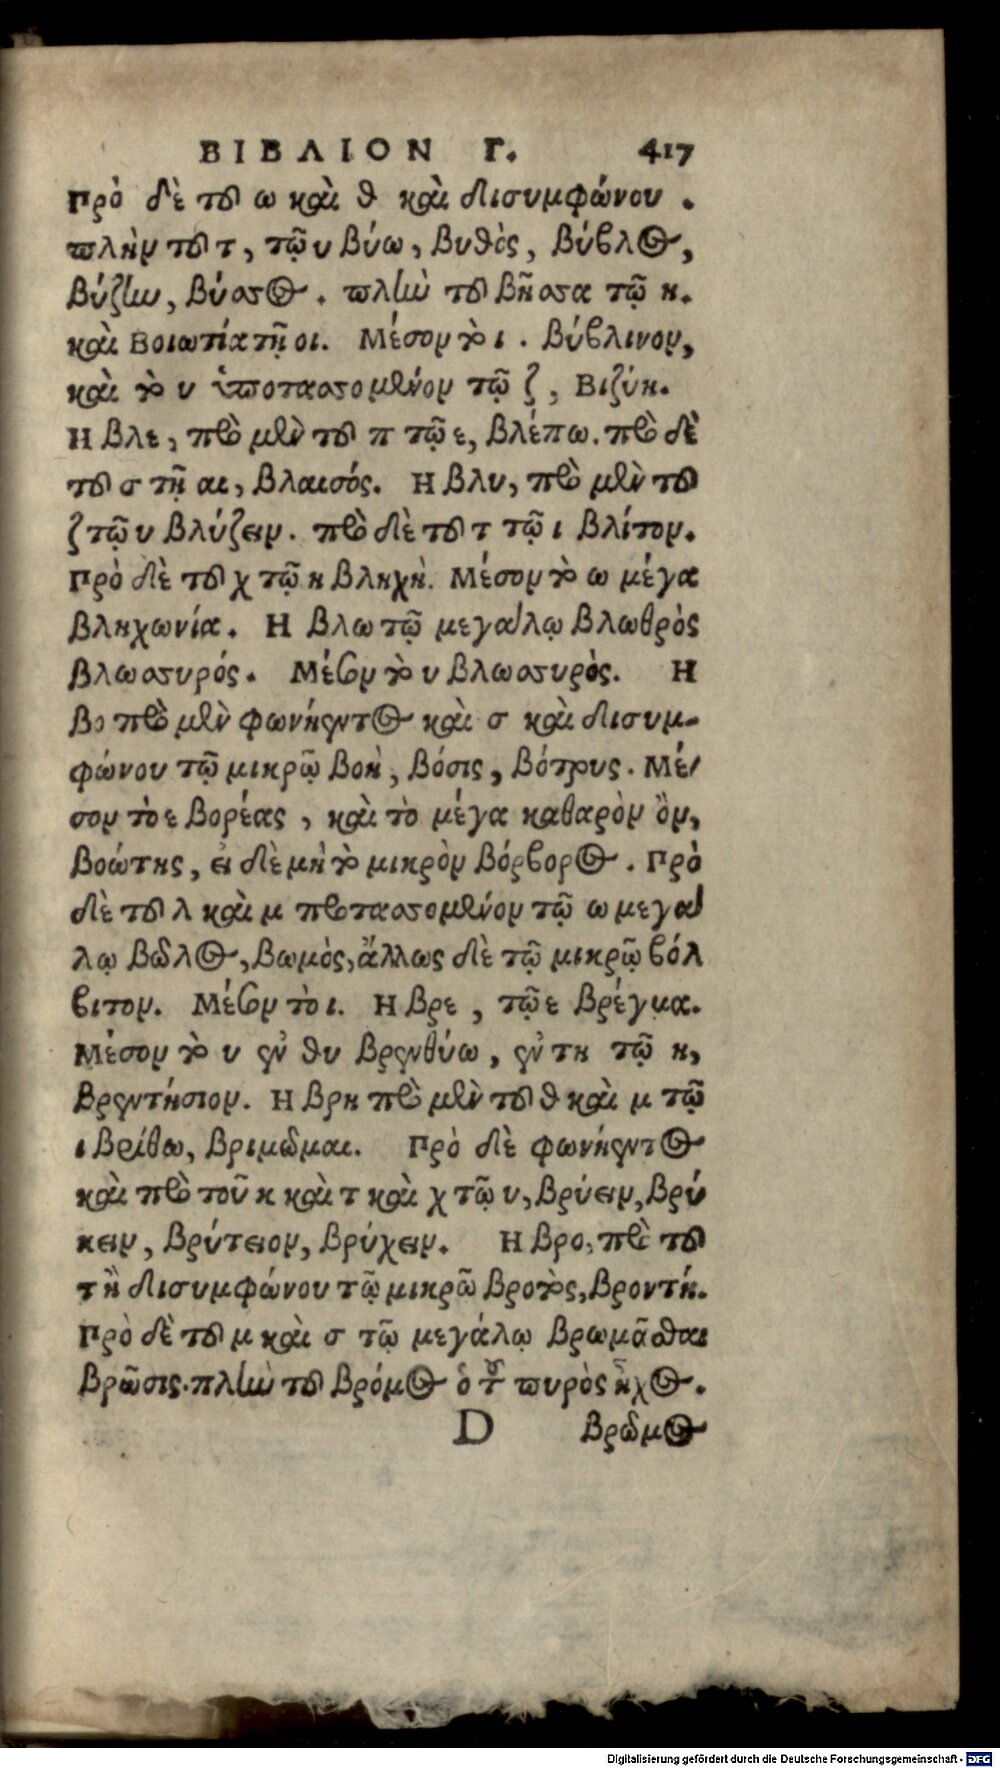 ΒΙΒΛΙΟΝ Γ. 417
Πρὸ δὲ τοῦ ω καὶ θ καὶ δισυμφώνου .
πλὴν τοῦ τ, τῷ υ βύω, βυθὸς, βύβλος,
βύζην, βύστος. πλὴν τοῦ βῆστα τῷ η.
καὶ Βοιωτία τῇ οι. Μέσον τὸ ι . βύβλινον,
καὶ τὸ υ ὑποτασσομένον τῷ ζ, Βιζύη.
Η βλε, πρὸ μὲν τοῦ π τῷ ε, βλέπω. πρὸ δὲ
τοῦ σ τῇ αι, βλαισός. Η βλυ, πρὸ μὲν τοῦ
ζ τῷ υ βλύζειν. πρὸ δὲ τοῦ τ τῷ ι βλίτον.
Πρὸ δὲ τοῦ χ τῷ η βληχὴ. Μέσον τὸ ω μέγα
βληχωνία. Η βλω τῷ μεγάλῳ βλωθρὸς
βλωσυρός. Μέσον τὸ υ βλωσυρὸς. Η
βο πρὸ μὲν φωνήεντος καὶ σ καὶ δισυμ-
φώνου τῷ μικρῷ βοὴ, βόσις, βότρυς. Μέ-
σον τὸ ε βορέας, καὶ τὸ μέγα καθαρὸν ὂν,
βοώτης, εἰ δὲ μὴ τὸ μικρὸν βόρβορος. Πρὸ
δὲ τοῦ λ καὶ μ προτασσομένον τῷ ω μεγά
λῳ βῶλος, βωμὸς, ἄλλως δὲ τῷ μικρῷ βόλ
βιτον. Μέσον τὸ ι. Η βρε, τῷ ε βρέγμα.
Μέσον τὸ υ ἐν θυ βρενθύω, ἐν τη τῷ η,
Βρεντήσιον. Η βρη πρὸ μὲν τοῦ θ καὶ μ τῷ
ι βρίθω, βριμῶμαι. Πρὸ δὲ φωνήεντος
καὶ πρὸ τοῦ κ καὶ τ καὶ χ τῷ υ, βρύειν, βρύ
κειν, βρύτειον, βρύχειν. Η βρο, πρὸ τοῦ
τ ἢ δισυμφώνου τῷ μικρῷ βροτὸς, βροντή.
Πρὸ δὲ τοῦ μ καὶ σ τῷ μεγάλῳ βρωμᾶσθαι
βρῶσις. πλὴν τοῦ βρόμος ὁ τοῦ πυρὸς ἦχος.
D βρῶμος
Digitalisierung gefördert durch die Deutsche Forschungsgemeinschaft - DFG